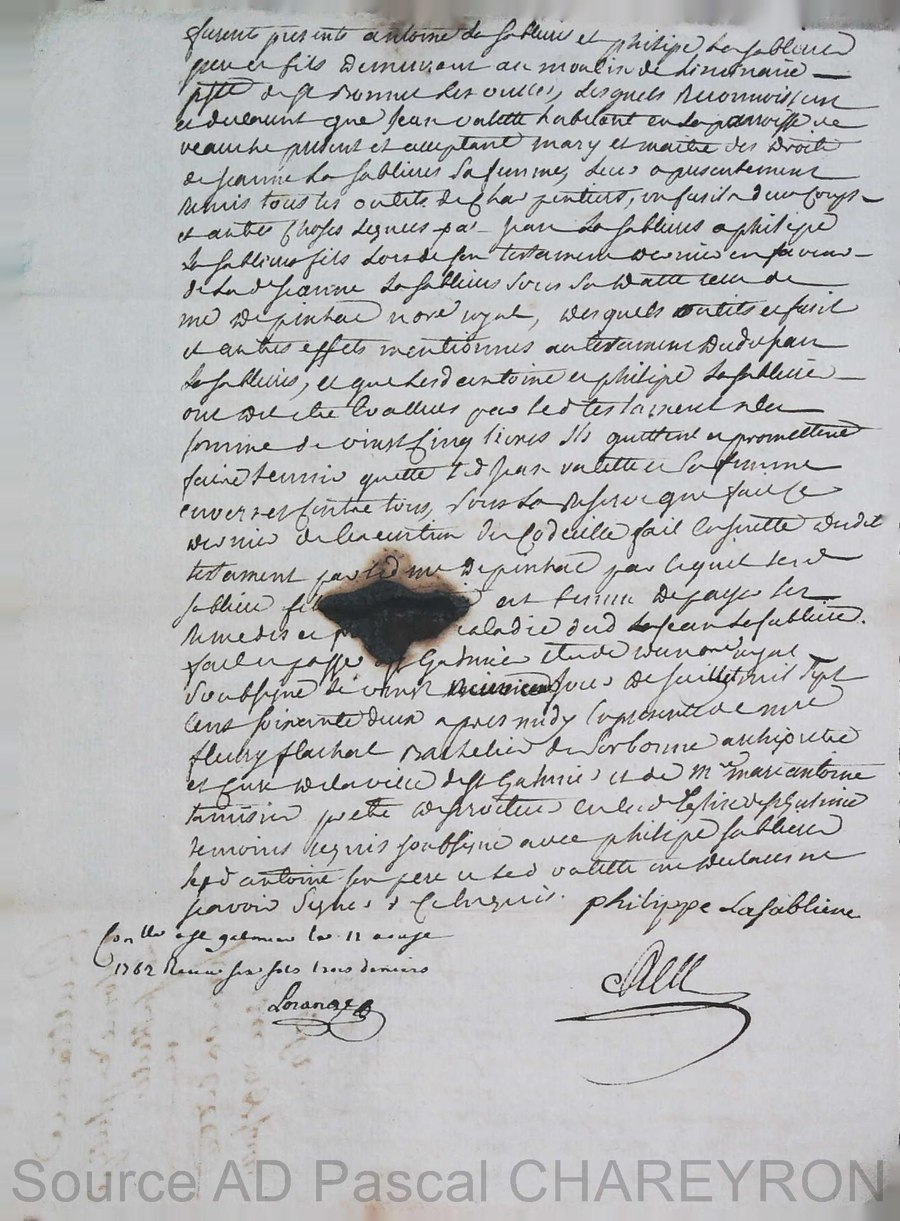 furent presents antoine La Sabliere et philipe La Sabliere
pere et fils Demeurant au moulin de
psse de st Bonnet Les oulles, Lesquels Reconnoissent
et declarent que Jean valette habitant en La paroisse de
veauche present et acceptant mary et maitre des Droits
de Jeanne La Sabliere Sa femme, Leur a presentement
Remis tous les outils de Charpentier, un fusil a deux Coups
et autres Choses Leguees par Jean La Sabliere a philipe
La Sabliere fils Lors de son testament dernier en faveur
de La de Jeanne La Sabliere Sous Sa datte Receu
me Depinhac nore royal, desquels outils et fusil
et autres effets mentionnes au testament dudt Jean
La Sabliere, et que Lesd antoine et philipe La Sabliere
ont dit etre Evallues par Led testament a la
somme de vint Cinq Livres Ils quittent et promettent
faire tenir quitte Led Jean valette et Sa femme
envers et Contre tous, Sous La Reserve que fait Ce
dernier de L'execution du Codicille fait Ensuitte dudit
testament par Led me Depinhac par Lequel Led
Sabliere fils est tenu De payer Les
Remedes et maladie dud Jean La Sabliere.
fait et passe a st Galmier Etude du nore royal
Soubsigne Le vint Jour De Juillet mil Sept
Cent soixante deux apres midy En presence de mre
fleury flachat Bachelier de Sorbonne archipretre
et Cure de la ville de st Galmier et de Mre marc antoine
tamisier pretre en Lad Eglise de st Galmier
temoins requis soubsigne avec philipe Sabliere
Led antoine son pere et Led valette ont Declare ne
scavoir Signer de Ce Enquis.
philippe Lasabliere
Conlle a st galmier Le 11 aoust
1762 Receu six sols trois deniers